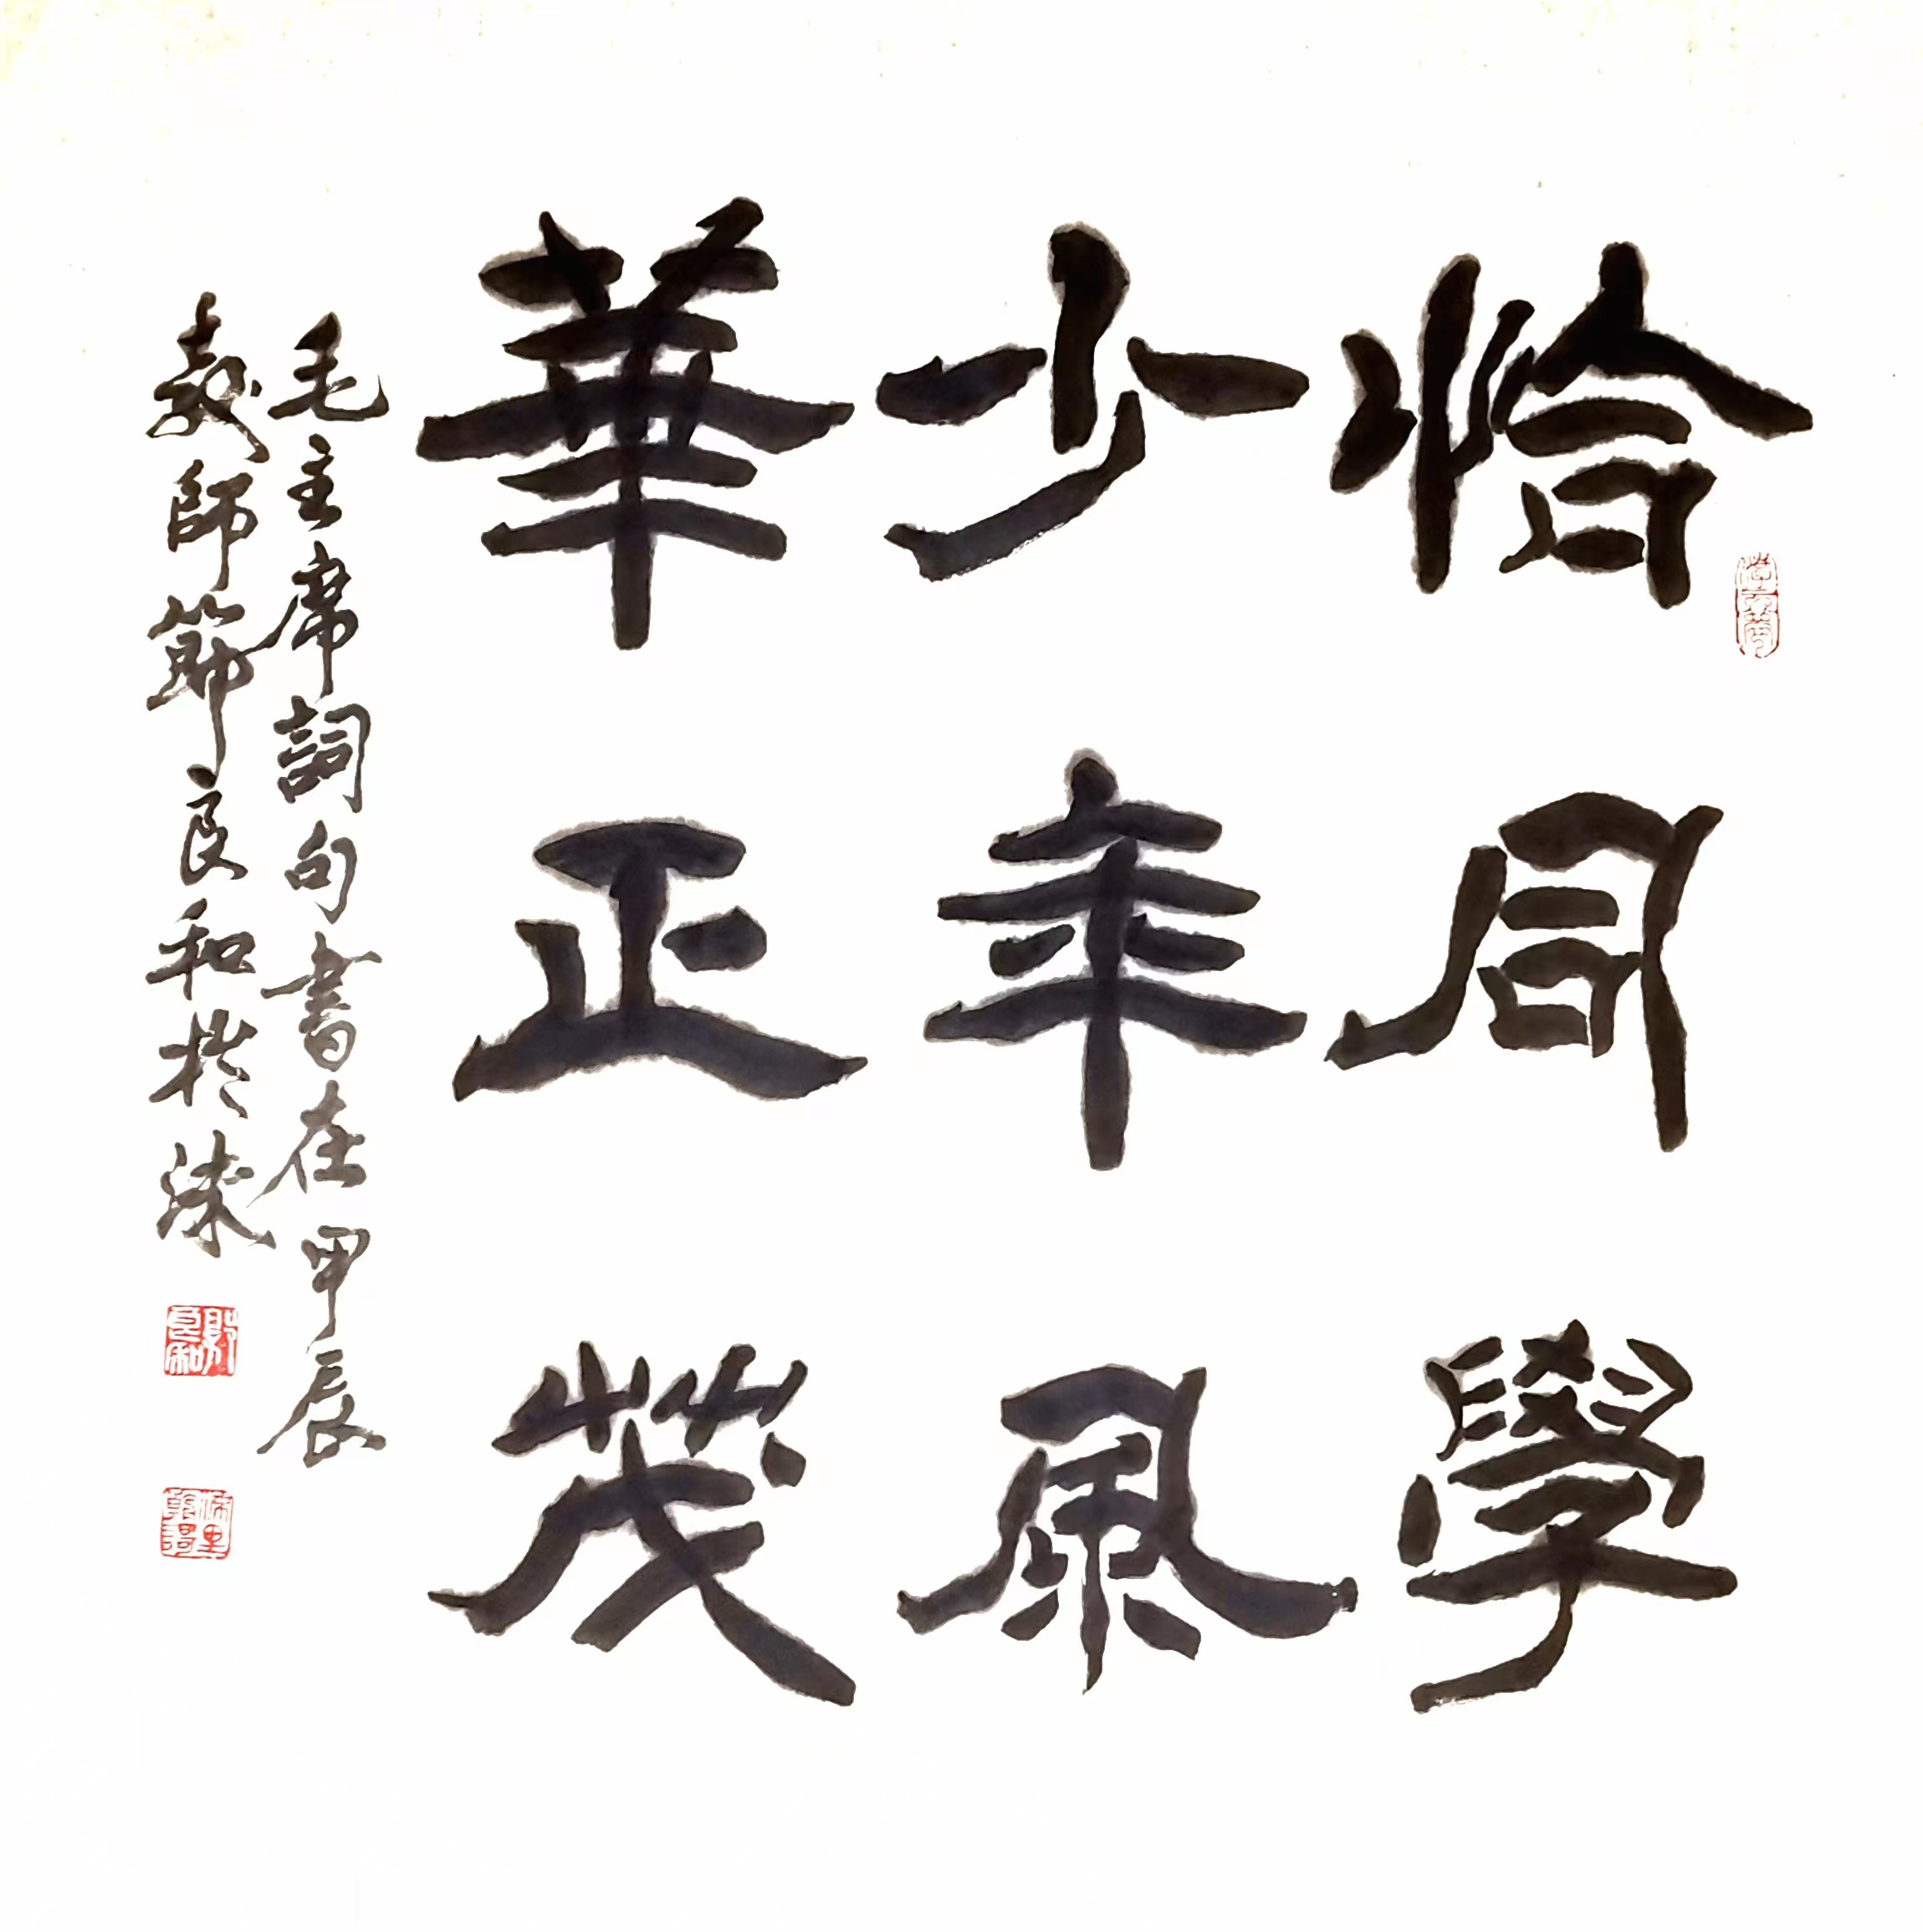 恰同學
少年風
華正茂
毛主席詞句書在甲辰
教師節良和於滁